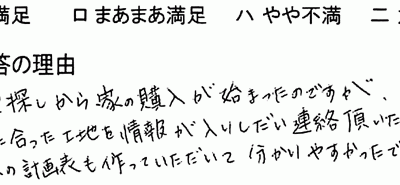 満足 ロ まあまあ満足 ハ やや不満 ニ
答の理由
探しから家の購入が始まったのですが、
に合った土地を情報が入りしだい連絡頂いた
の計画表も作っていただいて分かりやすかったで